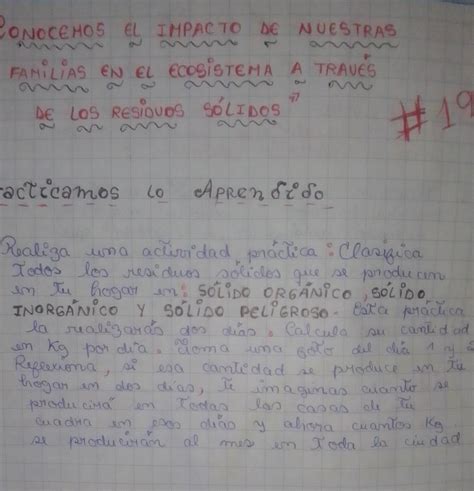 CONOCEMOS EL IMPACTO DE NUESTRAS
FAMILIAS EN EL ECOSISTEMA A TRAVÉS
DE LOS RESIDUOS SÓLIDOS"
#19
acticamos lo Aprendido
Realiza una actividad práctica: Clasifica
Todos los residuos sólidos que se producen
en Tu hogar en: SÓLIDO ORGÁNICO, SÓLIDO
INORGÁNICO Y SÓLIDO PELIGROSO. Esta práctica
la realizarás dos días. Calcula su cantidad
en Kg por día. Toma una foto del día 1 y 2
Reflexiona, si esa cantidad se produce en Tu
hogar en dos días, Te imaginas cuanto se
producirá en Todas las casas de Tu
cuadra en esos días y ahora cuantos Kg
se producirán al mes en Toda la ciudad